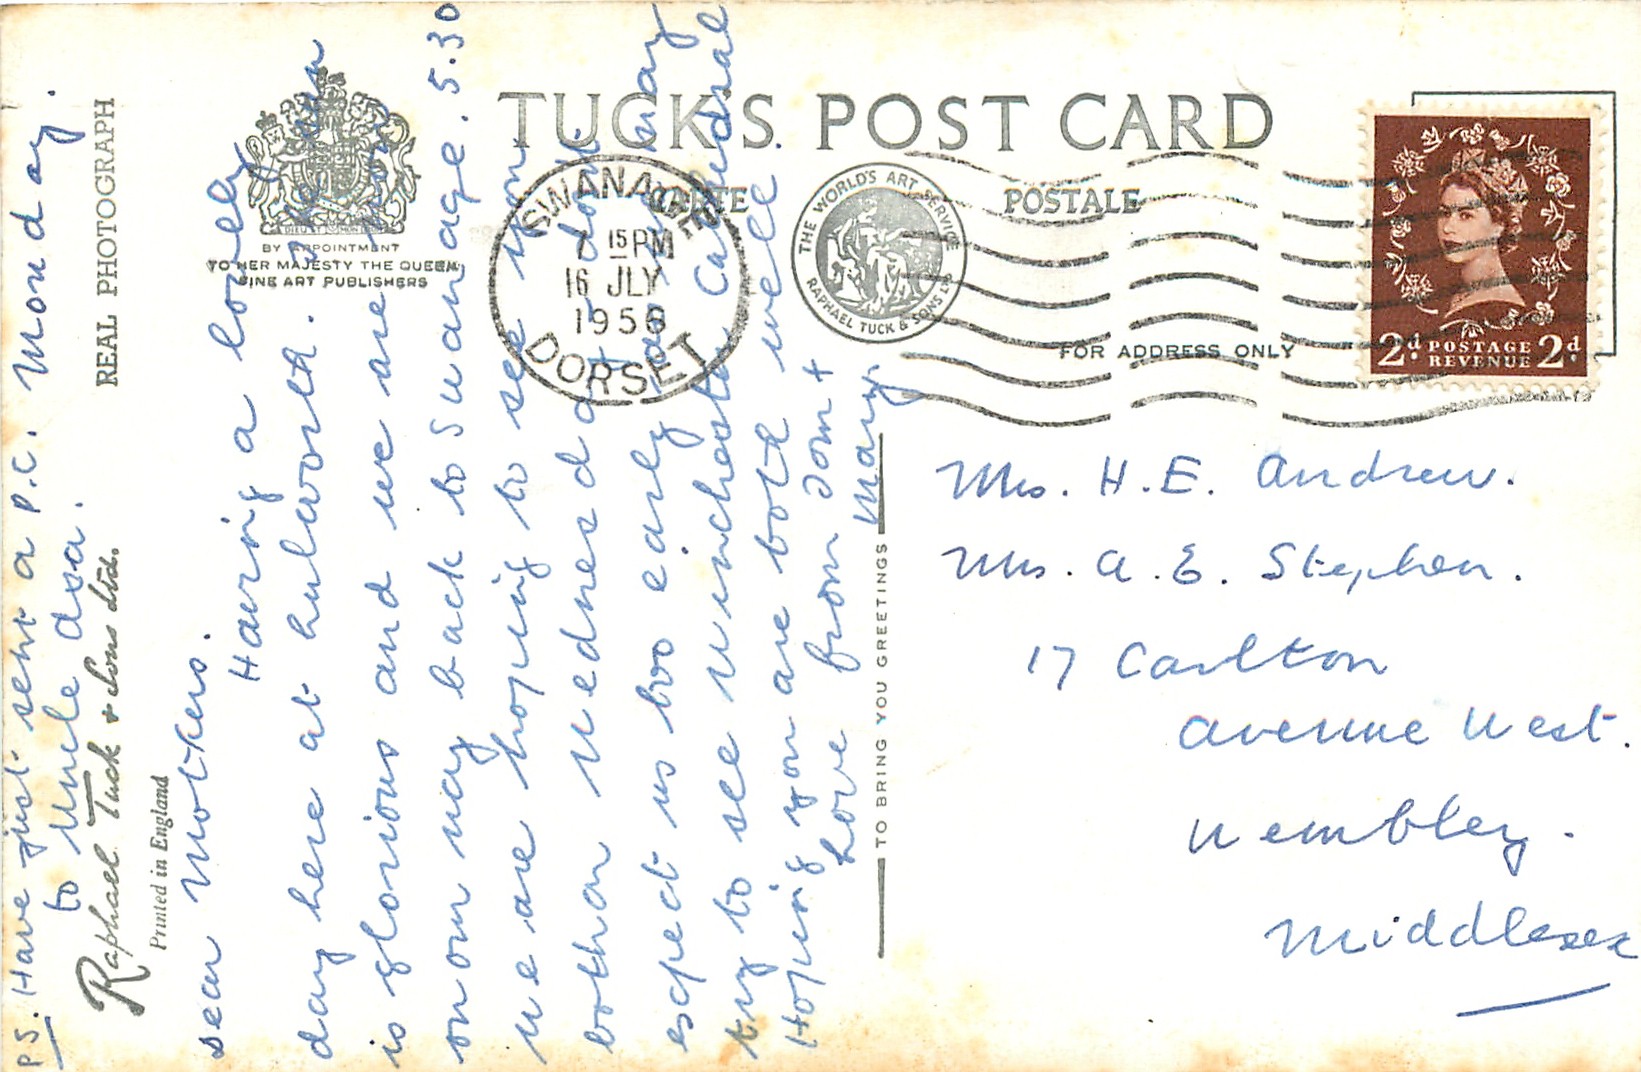 TUCK'S POST CARD
CARTE POSTALE
BY APPOINTMENT
TO HER MAJESTY THE QUEEN
FINE ART PUBLISHERS
THE WORLD'S ART SERVICE
RAPHAEL TUCK & SONS LTD
FOR ADDRESS ONLY
SWANAGE
7 15 PM
16 JLY
1956
DORSET
2d. POSTAGE REVENUE 2d.
REAL PHOTOGRAPH
Raphael Tuck & Sons Ltd.
Printed in England
TO BRING YOU GREETINGS
PS. Have just sent a P.C. Monday.
to Uncle Asa.
Dear Mothers.
Having a lovely
day here at Lulworth. The sun
is glorious and we are now
on our way back to Swanage. 5.30
We are hoping to see you
both on Wednesday don't
expect us too early as we may
try to see Winchester Cathedral.
Hoping you are both well.
Love from Tom +
Mary.
Mrs. H. E. Andrew.
Mrs. A. E. Stephen.
17 Carlton
Avenue West.
Wembley.
Middlesex